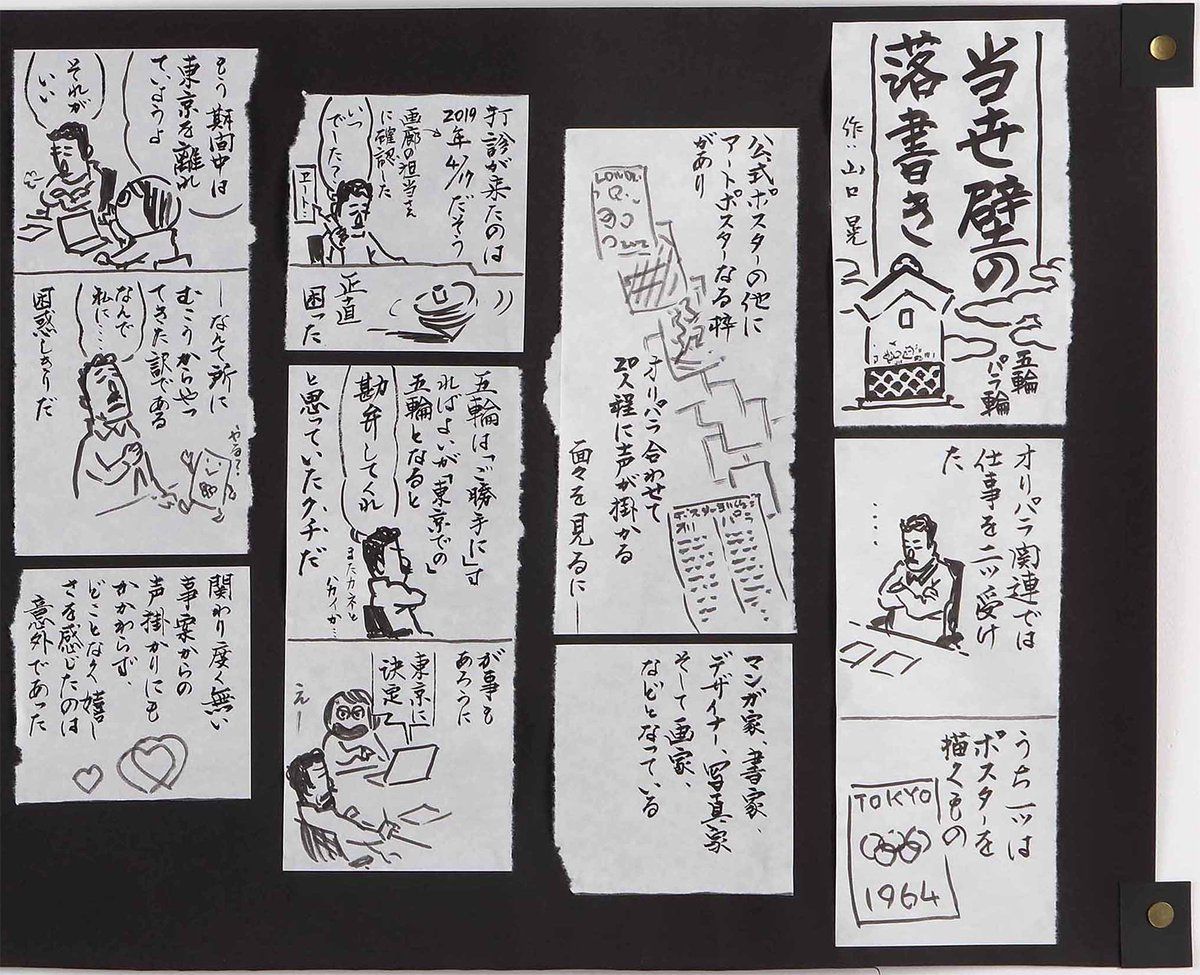 当世壁の
落書き
作:山口 晃
五輪
パラ輪
オリパラ関連では
仕事を二ッ受け
た
‥‥
うち一ッは
ポスターを
描くもの
TOKYO
1964
公式ポスターの他に
アートポスターなる枠
があり
LONDON
オリパラ合わせて
20人程に声が掛かる
面々を見るに―
オリ
パラ
マンガ家、書家、
デザイナー、写真家
そして画家、
などとなっている
打診が来たのは
2019年4/17だそう
画廊の担当さん
に確認した
いつ
でした?
エート…
正直
困った
五輪は「ご勝手に」す
ればよいが「東京での」
五輪となると
勘弁してくれ
と思っていたクチだ
またカネと
が事も
あろうに
東京に
決定って
えー
もう期間中は
東京を離れ
ていようよ
それが
いい
―なんて所に
むこうからやっ
てきた訳である
なんで
私に…
やる?
困惑しきりだ
関わり度く無い
事案からの
声掛かりにも
かかわらず、
どことなく嬉し
さを感じたのは
意外であった